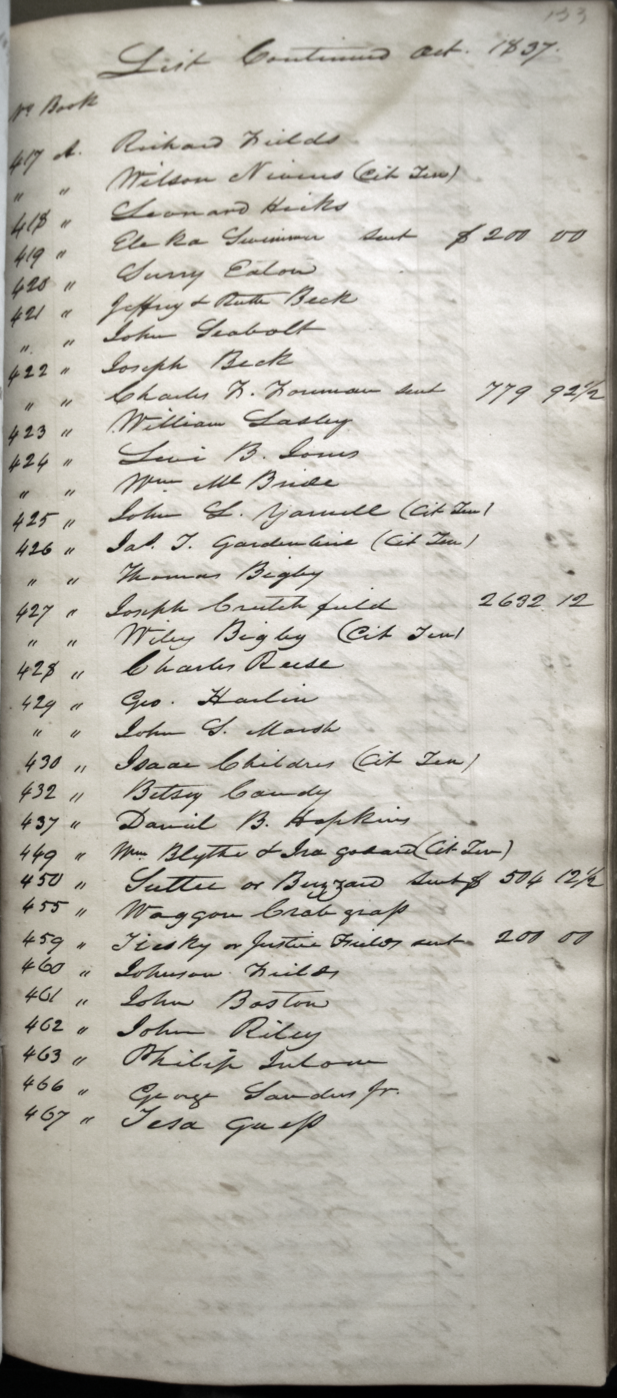 133
List Continued Oct. 1837.
No Book
417 A. Richard Fields
" " Wilson Nivens (Cit Ten)
418 " Leonard Hicks
419 " Ele ka Swimmer sent $ 200 00
420 " Surry Eaton
421 " Jeffrey & Ruth Beck
" " John Seabolt
422 " Joseph Beck
" " Charles F. Foreman sent 779 92½
423 " William Lasley
424 " Levi B. Jones
" " Wm Mc Bride
425 " John L. Yarnell (Cit Ten)
426 " Jas. T. Gardenhire (Cit Ten)
" " Thomas Bigby
427 " Joseph Crutchfield 2632 12
" " Wiley Bigby (Cit Ten)
428 " Charles Reese
429 " Geo. Harlin
" " John S. Marsh
430 " Isaac Childres (Cit Ten)
432 " Betsy Candy
437 " Daniel B. Hopkins
449 " Wm Blythe & Ira Godard (Cit Ten)
450 " Suttee or Buzzard sent $ 504 12½
455 " Waggon Crabgrass
459 " Tiesky or Justice Fields sent 200 00
460 " Johnson Fields
461 " John Boston
462 " John Riley
463 " Philip Inlow
466 " George Sanders Jr.
467 " Tesa Guess